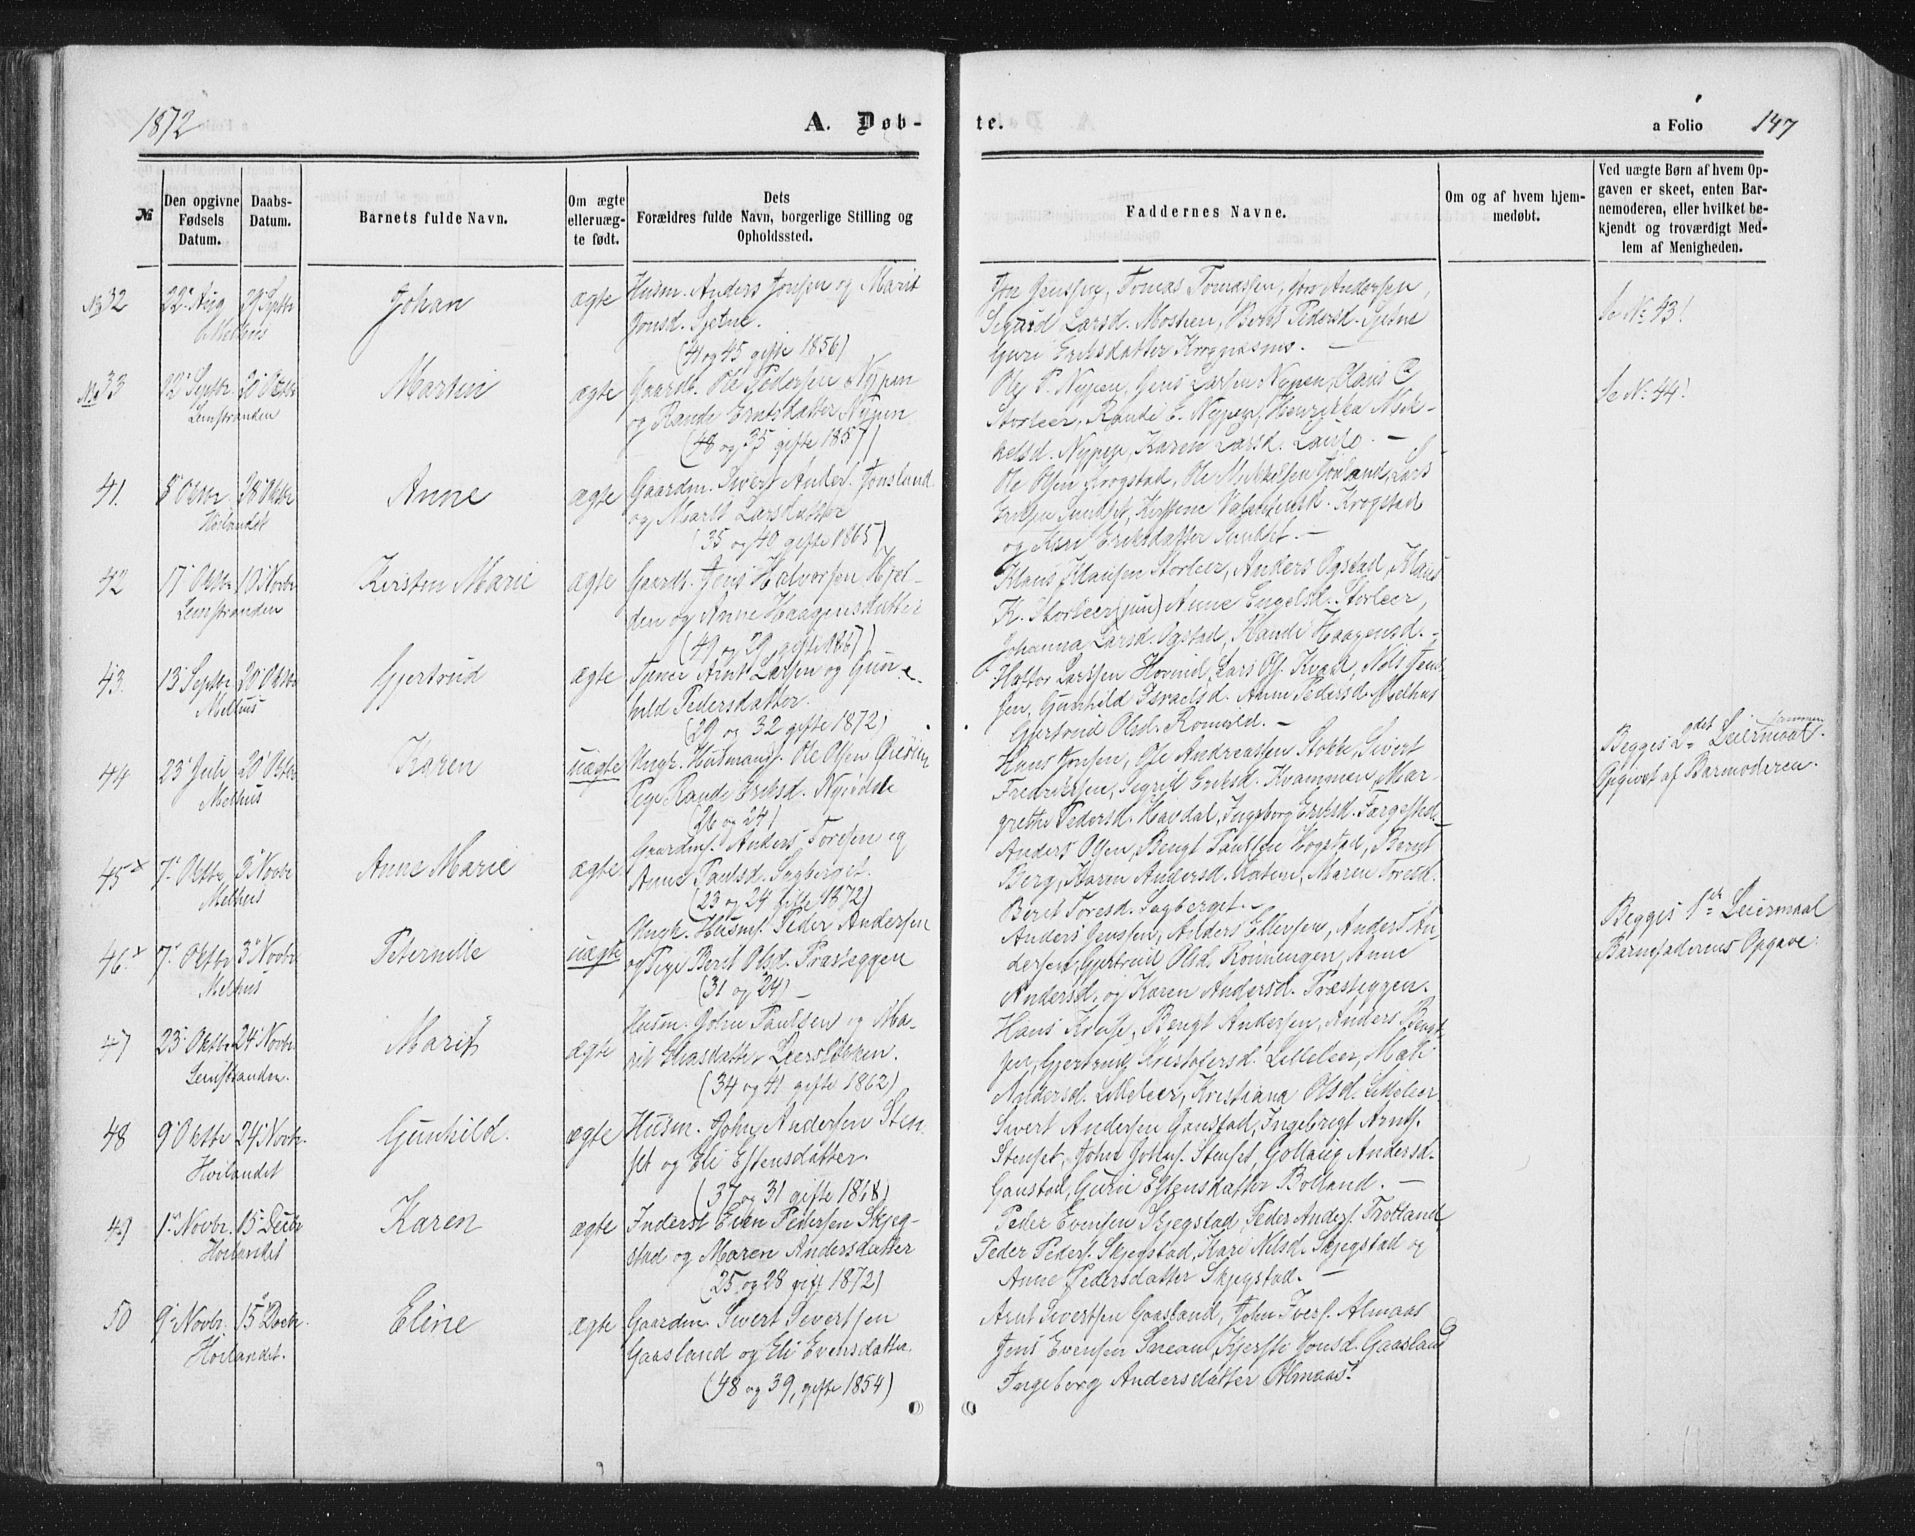 1872
A. Døb-
te.
a Folio 147
№
Den opgivne Fødsels Datum.
Daabs-Datum.
Barnets fulde Navn.
Om ægte eller uæg-te født.
Dets Forældres fulde Navn, borgerlige Stilling og Opholdssted.
Faddernes Navne.
Om og af hvem hjem-medøbt.
Ved uægte Børn af hvem Op-gaven er skeet, enten Bar-nemoderen, eller hvilket be-kjendt og troværdigt Med-lem af Menigheden.
No 32 22 Aug 29 Septbr Melhus Johan ægte
Husm. Anders Jonsen og Marit
Jonsd. Sjetne.
(41 og 45 gifte 1856)
Jon Jenssen, Tomas Tomassen, Andersen,
Sigrid Larsd. Mostien, Berit Pedersd. Sjetne
Guri Eriksdatter Krognæsmo. —
Se No. 43!
No 33 12 Septbr 20 Oktbr Leinstranden Martin ægte
Gaardb. Ole Pedersen Nypen
og Rande Erntsdatter Nypen
(48 og 35 gifte 1857)
Ole P. Nypen, Jens Larsen Nypen, Claus C
Storleer, Randi E. Nypen, Henrikka Mik-
kelsd. Nypen, Karen Larsd. —
Se No. 44!
41. 5 Oktbr 28 Oktbr Høilandet Anne ægte
Gaardm. Sivert Anders. Jonsland
og Marit Larsdatter
(35 og 40 gifte 1865)
Ole Olsen Krogstad, Ole Mikkelsen Jonland, Lars
Eriksen Sundset, Kirstine Valentinsd. Krogstad
og Kari Eriksdatter Sundset. —
42 17 Oktbr 10 Novbr Leinstranden Kirsten Marie ægte
Gaardb. Jens Halvorsen Hjel-
den og Anne Haagensdatter
(49 og 29 gifte 1867)
Klaus Klausen Storleer, Anders Ogstad, Klaus
K. Storleer (jun) Anne Engelsd. Storleer,
Johanna Larsd. Ogstad, Randi Haagensd. -
43. 13 Septbr 20 Oktbr Melhus Gjertrud ægte
Arnt Larsen og Gun-
hild Pedersdatter.
(29 og 32 gifte 1872)
Haltor Larssen Hovind, Lars Ols. Kvaal, Nils Jens-
sen, Gunhild Israelsd. Anne Pedersd. Melhus
Gjertrud Olsd. —
44 23 Juli 20 Oktbr Melhus Karen uægte
Ungk. Husmans. Ole Olsen
Pige Rande Eriksd.
(26 og 24)
Hans Jonsen, Ole Andreassen Stokke, Sivert
Fredriksen, Sigrid Eriksd. Kvammen, Mar-
grethe Pedersd. Havdal, Ingeborg Eriksd.
Begges 2det Leiermaal sammen.
Opgivet af Barmoderen.
45 x 7 Oktbr 3 Novbr Melhus Anne Marie ægte
Gaardm. Anders Toresen og
Anne Paulsd. Sagberget.
(23 og 24 gifte 1872)
Anders Olsen, Bengt Paulsen Hogstad, Bengt
Berg, Karen Andersd. Maren Toresd.
Beret Toresd. Sagberget. —
46. x 7 Oktbr 3 Novbr Melhus Peternelle uægte
Ungk. Husms. Peder Andersen
og Pige Berit Olsd. Præsteggen
(31 og 24) —
Anders Jenssen, Anders Ellevsen, Anders An-
dersen, Gjertrud Olsd. Rønningen, Anne
Andersd. og Karen Andersd. Præsteggen.
Begges 1ste Leiermaal
Barnefaderens Opgave.
47 23 Oktbr 24 Novbr Leinstranden. Marit ægte
Husm. John Paulsen og Ma-
rit Eliasdatter Leersløkken.
(34 og 41 gifte 1862)
Hans Kruse, Bengt Andersen, Anders Bengt-
sen, Gjertrud Kristofersd. Lilleleer, Mali
Andersd. Lilleleer, Kristiana Olsd. Lilleleer
48 9 Oktbr 24 Novbr. Høilandet Gunhild. ægte
Husm. John Andersen Sten-
set og Eli Estensdatter.
(37 og 31 gifte 1868)
Sivert Andersen Gaustad, Ingebrigt Arnts.
Stenset, John Johns. Stenset, Gollaug Andersd.
Gaustad, Guru Estensdatter Bolland. —
49 1 Novbr. 15 Decbr Høilandet Karen ægte
Inderst Even Pedersen Skjeg-
stad og Maren Andersdatter
(25 og 28 gift 1872)
Peder Evensen Skjegstad, Peder Anders. Trotland
Peder Peders. Skjegstad, Kari Nilsd. Skjegstad og
Anne Pedersdatter Skjegstad. —
50 9 Novbr. 15 Decbr. Høilandet. Eline ægte
Gaardm. Sivert Sivertsen
Gaasland og Eli Evensdatter.
(48 og 39, gifte 1854)
Arnt Sivertsen Gaasland, John Ivers. Almaas
Jens Evensen Sneaun, Kjersti Jonsd. Gaasland
Ingeborg Andersdatter Almaas.